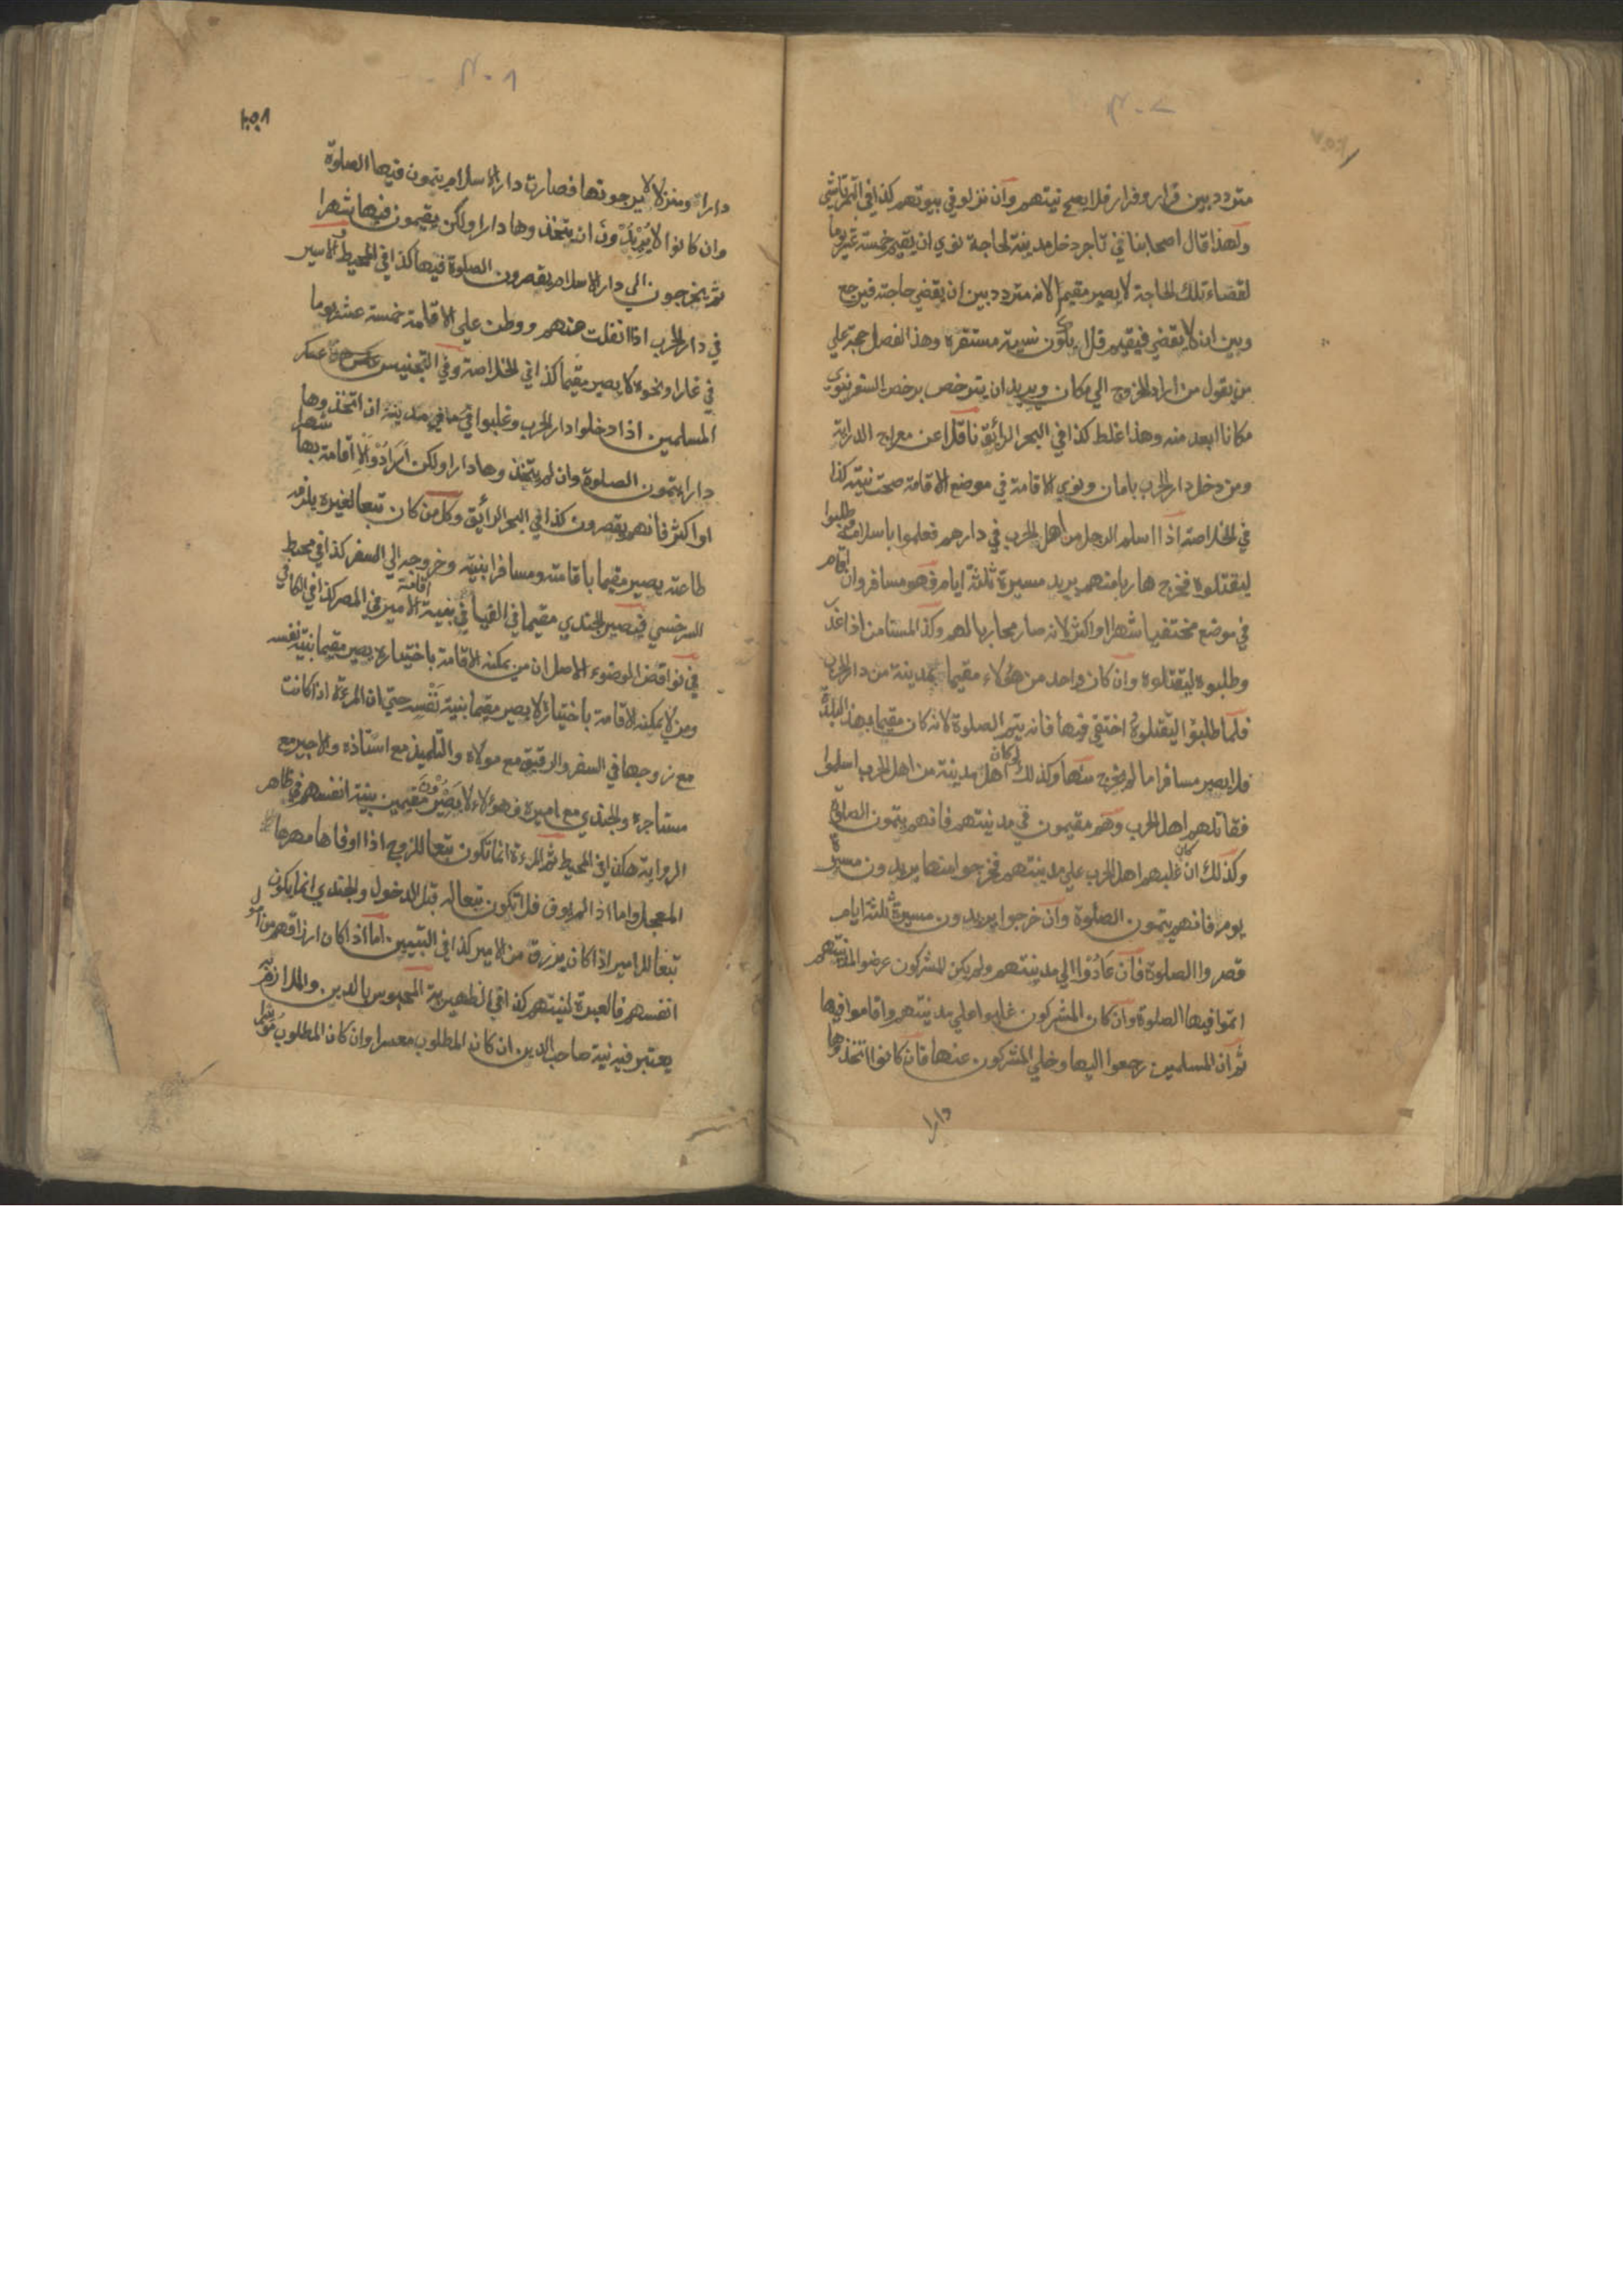 متردد بين قرار وفرار فلا يصح نيتهم وان نزلو في بيوتهم كذا في التمرتاشي
ولهذا قال اصحابنا في تاجر دخل مدينة لحاجة نوي ان يقيم خمسة عشر يوما
لقضاء تلك الحاجة لا يصير مقيما لانه متردد بين ان يقضي حاجته فيرجع
وبين ان لا يقضي فيقيم فلا يكون نييته مستقرة وهذا الفصل حجة علي
من يقول من اراد الخروج الي مكان ويريد ان يترخص برخص السفر ينوي
مكانا ابعد منه وهذا غلط كذا في البحر الرائق ناقلا عن معراج الدراية
ومن دخل دار الحرب بامان ونوي الاقامة في موضع الاقامة صحت نيته كذا
في الخلاصة اذا اسلم الرجل من اهل الحرب في دارهم فعلموا باسلامه وطلبوا
ليقتلوه فخرج هاربا منهم يريد مسيرة ثلثة ايام فهو مسافر وان اقام
في موضع مختفيا شهرا او اكثر لانه صار محاربا لهم وكذا المستامن اذا غدر
وطلبوه ليقتلوه وان كان واحد من هؤلاء مقيما بمدينة من دار الحرب
فلما طلبوا ليقتلوه اختفي فيها فانه يتم الصلوة لانه كان مقيما بهذا البلدة
فلا يصير مسافرا ما لم يخرج منها وكذلك لو كان اهل مدينة من اهل الحرب اسلموا
فقاتلهم اهل الحرب وهم مقيمون في مدينتهم فانهم يتمون الصلوة
وكذلك ان كان غلبهم اهل الحرب علي مدينتهم فخرجوا منها يريدون مسيرة
يوم فانهم يتمون الصلوة وان خرجوا يريدون مسيرة ثلثة ايام
قصروا الصلوة فان عادوا الي مدينتهم ولم يكن المشركون عرضوا لمدينتهم
اتموا فيها الصلوة وان كان المشركون غلبوا علي مدينتهم واقاموا فيها
ثم ان المسلمين رجعوا اليها وخلي المشركون عنها فان كانوا اتخذوها
دارا
دارا ومنزلا لا يبرحونها فصارت دار الاسلام يتمون فيها الصلوة
وان كانوا لا يريدون ان يتخذوها دارا ولكن يقيمون فيها شهرا
ثم يخرجون الي دار الاسلام يقصرون الصلوة فيها كذا في المحيط الاسير
في دار الحرب اذا انفلت منهم ووطن علي الاقامة خمسة عشر يوما
في غار او نحوه لا يصير مقيما كذا في الخلاصة وفي التجنيس عسكر
المسلمين اذا دخلوا دار الحرب وغلبوا في مدينة ان اتخذوها
دارا يتمون الصلوة وان لم يتخذوها دارا ولكن ارادوا الاقامة بها شهرا
او اكثر فانهم يقصرون كذا في البحر الرائق وكل من كان تبعا لغيره يلزمه
طاعته يصير مقيما باقامته ومسافرا بنيته وخروجه الي السفر كذا في محيط
السرخسي فيصير الجندي مقيما في الفيافي بنية اقامة الامير في المصر كذا في الكافي
في نواقض الوضوء الاصل ان من يمكنه الاقامة باختياره يصير مقيما بنية نفسه
ومن لا يمكنه الاقامة باختياره لا يصير مقيما بنية نفسه حتي ان المرءة اذا كانت
مع زوجها في السفر والرقيق مع مولاه والتلميذ مع استاذه والاجير مع
مستاجره والجندي مع اميره فهؤلاء لا يصيرون مقيمين بنية انفسهم في ظاهر
الرواية هكذا في المحيط ثم المرءة انما تكون تبعا للزوج اذا اوفاها مهرها
المعجل واما اذا لم يوف فلا تكون تبعا له قبل الدخول والجندي انما يكون
تبعا للامير اذا كان يرزق من الامير كذا في التبيين اما اذا كان ارزاقهم من اموال
انفسهم فالعبرة لنيتهم كذا في الظهيرية المحبوس بالدين والملازم
يعتبر فيه نية صاحب الدين ان كان المطلوب معسرا وان كان المطلوب موسرا